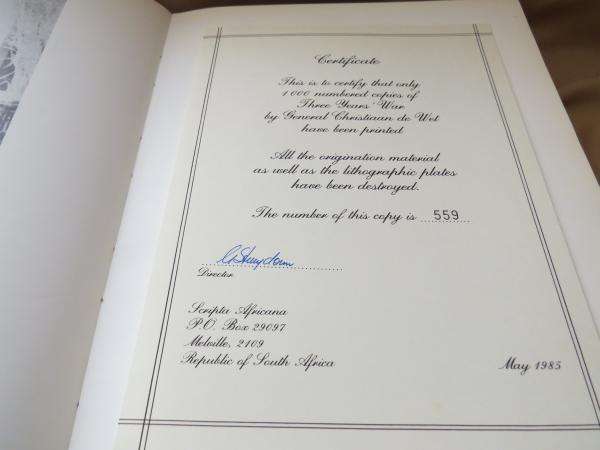 Certificate
This is to certify that only
1000 numbered copies of
Three Years' War
by General Christiaan de Wet
have been printed
All the origination material
as well as the lithographic plates
have been destroyed.
The number of this copy is 559
Director
Scripta Africana
P.O. Box 29097
Melville, 2109
Republic of South Africa
May 1985